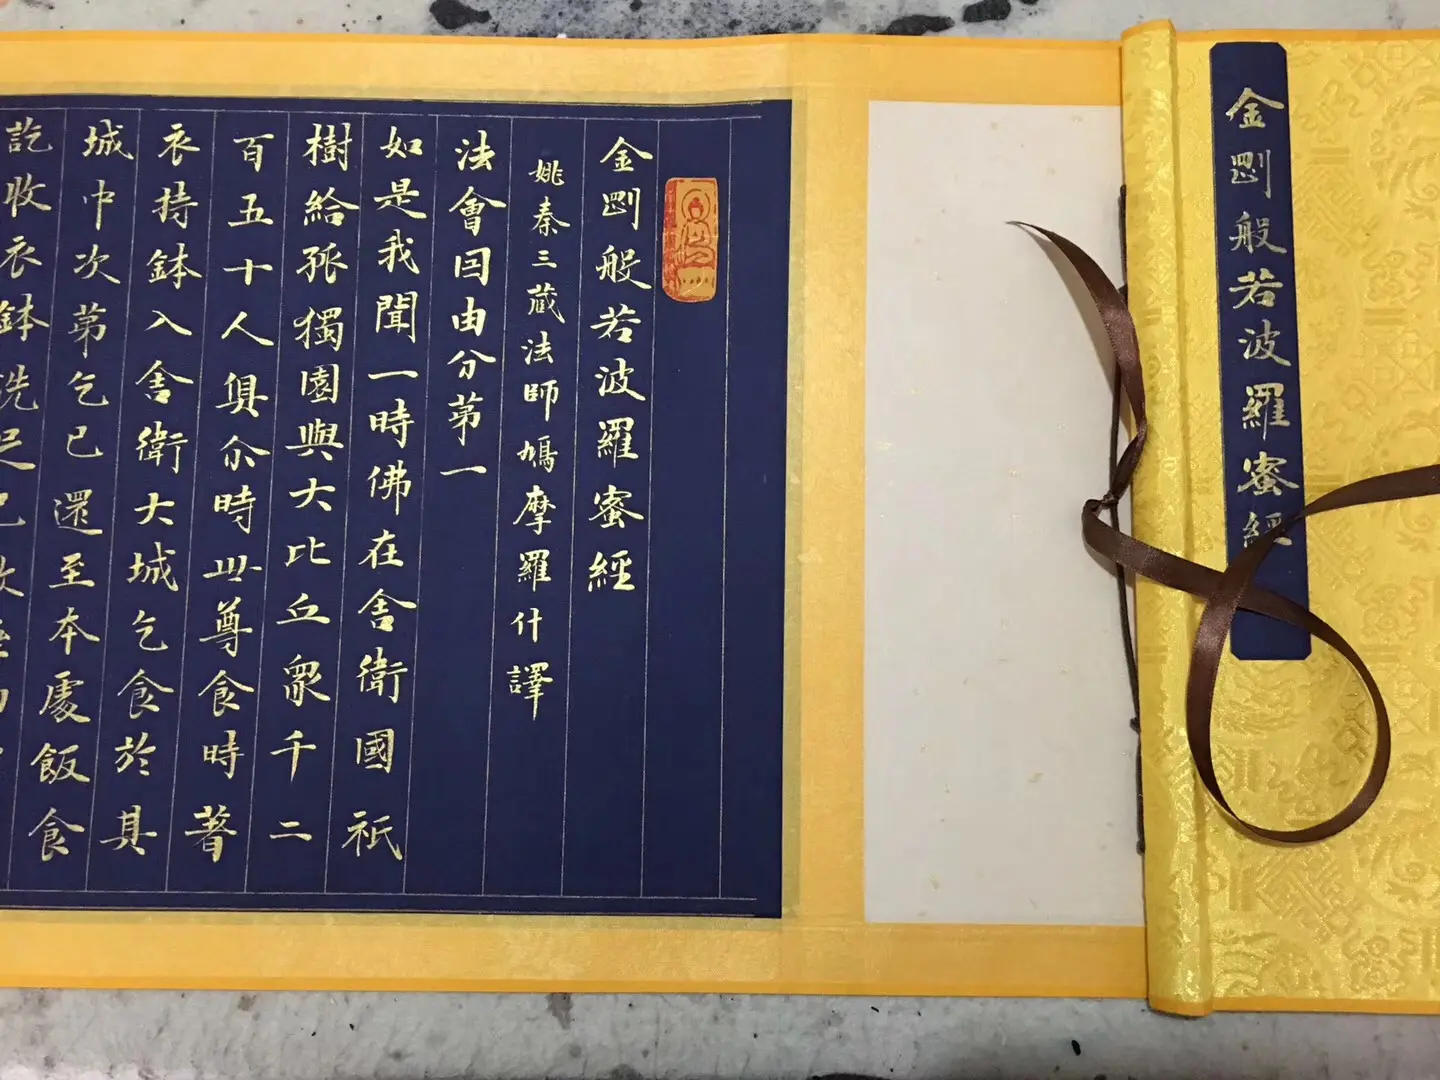 金剛般若波羅蜜經
金剛般若波羅蜜經
姚秦三藏法師鳩摩羅什譯
法會囙由分苐一
如是我聞一時佛在舍衛國祇
樹給孤獨園與大比丘眾千二
百五十人俱尒時世尊食時著
衣持鉢入舍衛大城乞食於其
城中次苐乞已還至本處飯食
訖收衣鉢洗足已